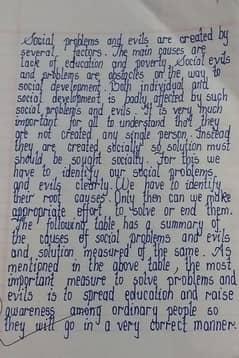 Social problems and evils are created by
several factors. The main causes are
lack of education and poverty. Social evils
and problems are obstacles on the way to
social development. Both individual and
social development is badly affected by such
social problems and evils. It is very much
important for all to understand that they
are not created any single person. Instead
they are created socially so solution must
should be sought socially. For this we
have to identify our social problems
and evils clearly. We have to identify
their root causes. Only then can we make
appropriate effort to solve or end them.
The following table has a summary of
the causes of social problems and evils
and solution measured of the same. As
mentioned in the above table, the most
important measure to solve problems and
evils is to spread education and raise
awareness among ordinary people so
they will go in a very correct manner.